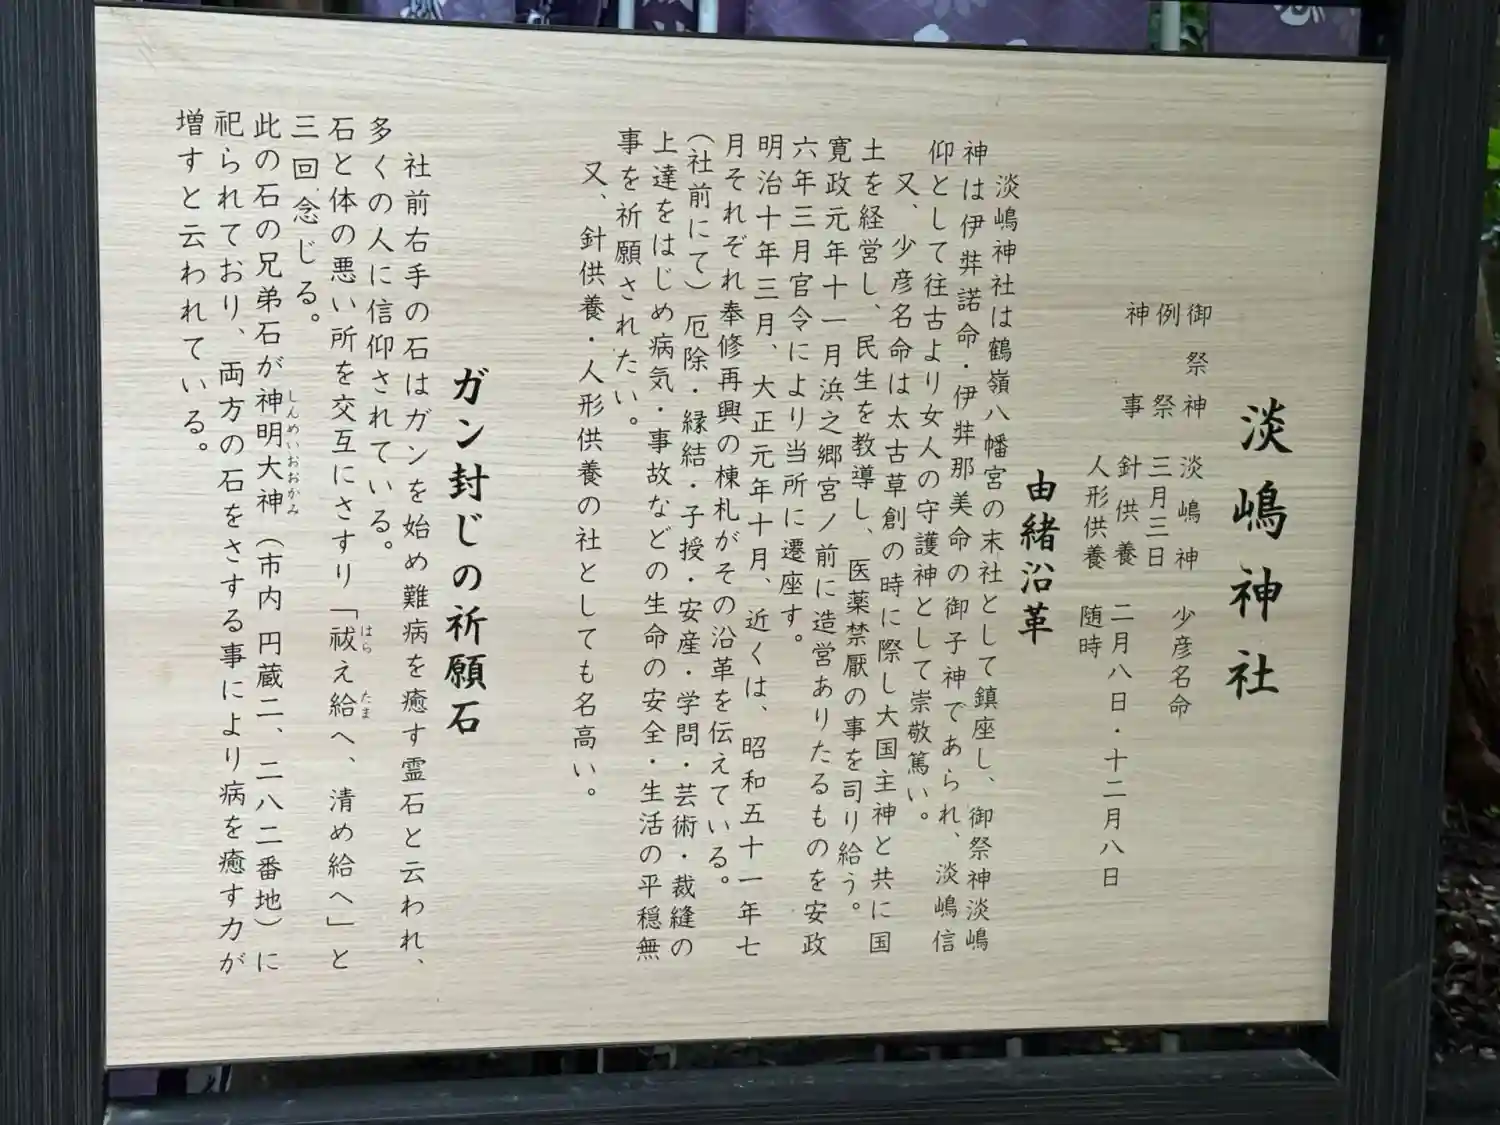 淡嶋神社
御祭神 淡嶋神 少彦名命
例祭 三月三日
神事 針供養 二月八日・十二月八日
人形供養 随時
由緒沿革
淡嶋神社は鶴嶺八幡宮の末社として鎮座し、御祭神淡嶋
神は伊弉諾命・伊弉那美命の御子神であられ、淡嶋信
仰として往古より女人の守護神として崇敬篤い。
又、少彦名命は太古草創の時に際し大国主神と共に国
土を経営し、民生を教導し、医薬禁厭の事を司り給う。
寛政元年十一月浜之郷宮ノ前に造営ありたるものを安政
六年三月官令により当所に遷座す。
明治十年三月、大正元年十月、近くは、昭和五十一年七
月それぞれ奉修再興の棟札がその沿革を伝えている。
(社前にて)厄除・縁結・子授・安産・学問・芸術・裁縫の
上達をはじめ病気・事故などの生命の安全・生活の平穏無
事を祈願されたい。
又、針供養・人形供養の社としても名高い。
ガン封じの祈願石
社前右手の石はガンを始め難病を癒す霊石と云われ、
多くの人に信仰されている。
石と体の悪い所を交互にさすり「祓え給へ、清め給へ」と
はら たま
三回念じる。
此の石の兄弟石が神明大神(市内 円蔵二、二八二番地)に
しんめいおおかみ
祀られており、両方の石をさする事により病を癒す力が
増すと云われている。